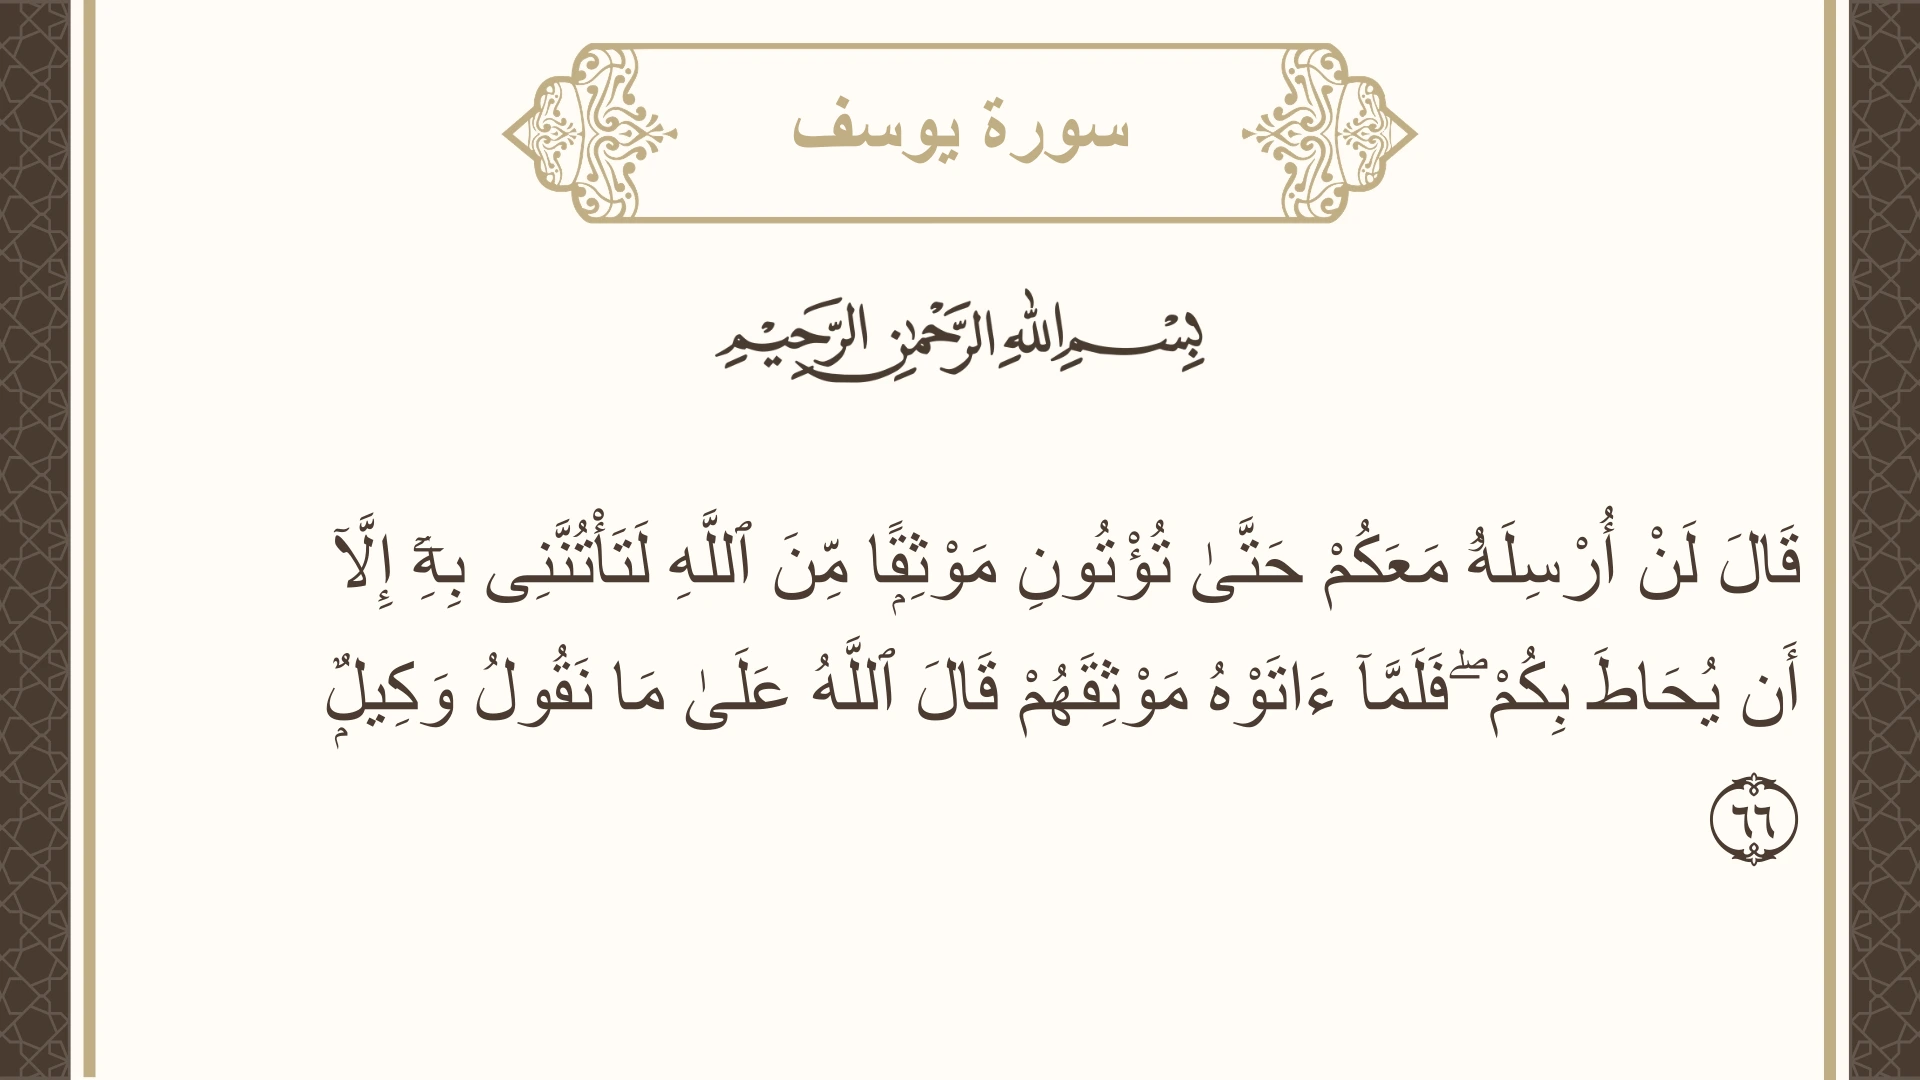 سورة يوسف
بِسْمِ اللهِ الرَّحْمٰنِ الرَّحِيْمِ
قَالَ لَنْ أُرْسِلَهُۥ مَعَكُمْ حَتَّىٰ تُؤْتُونِ مَوْثِقًۭا مِّنَ ٱللَّهِ لَتَأْتُنَّنِى بِهِۦٓ إِلَّآ
أَن يُحَاطَ بِكُمْ ۖ فَلَمَّآ ءَاتَوْهُ مَوْثِقَهُمْ قَالَ ٱللَّهُ عَلَىٰ مَا نَقُولُ وَكِيلٌۭ
٦٦